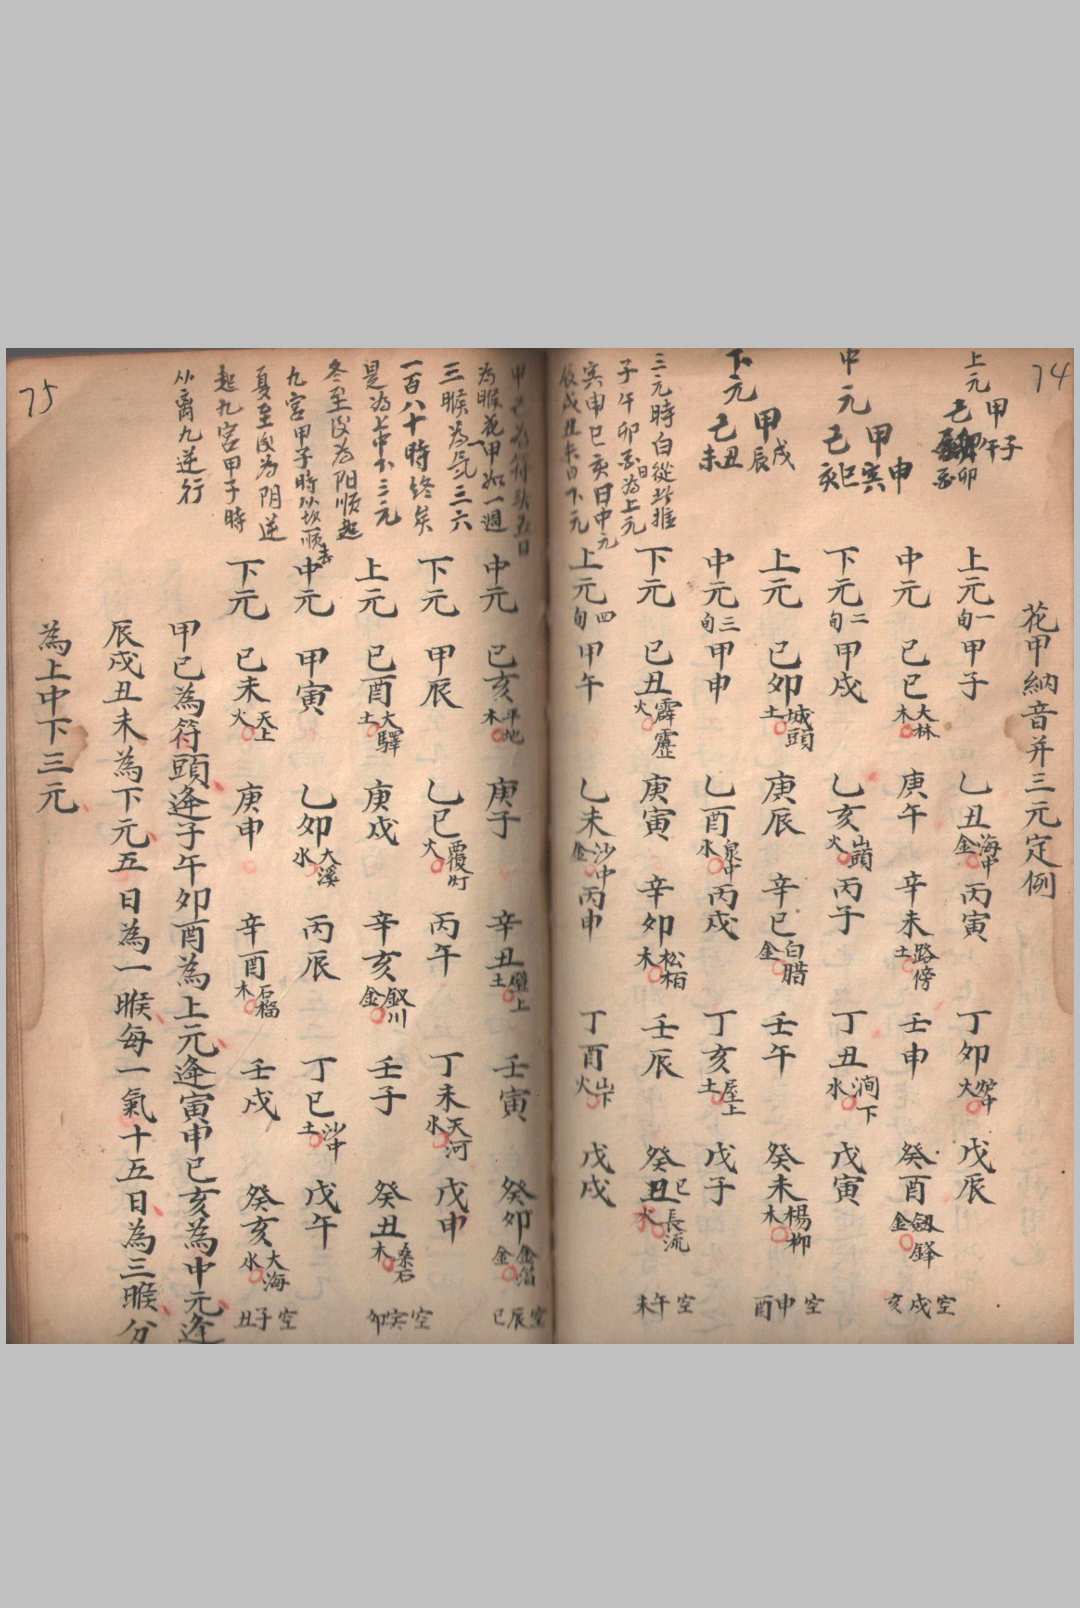 74
花甲納音并三元定例
上元
甲子午
己卯
中元
甲寅申
己巳亥
下元
甲辰戌
己丑未
三元時白從此推
子午卯酉日為上元
寅申巳亥日中元
辰戌丑未日下元
上元一旬 甲子 乙丑海中金 丙寅 丁卯 戊辰
中元 己巳大林木 庚午 辛未路傍土 壬申 癸酉劔鋒金 戌亥空
下元二旬 甲戌 乙亥山頭火 丙子 丁丑澗下水 戊寅
上元 己卯城頭土 庚辰 辛巳白腊金 壬午 癸未楊柳木 申酉空
中元三旬 甲申 乙酉泉中水 丙戌 丁亥屋上土 戊子
下元 己丑霹靂火 庚寅 辛卯松栢木 壬辰 癸巳長流水 午未空
上元四旬 甲午 乙未沙中金 丙申 丁酉山下火 戊戌
75
甲己為符頭五日
為睺花甲如一週
三睺為氣三六
一百八十時終矣
是為上中下三元
冬至後為阳順起
九宮甲子時从坎順去
夏至後為阴逆
起九宮甲子時
从离九逆行
中元 己亥平地木 庚子 辛丑壁上土 壬寅 癸卯金箔金 辰巳空
下元 甲辰 乙巳覆灯火 丙午 丁未天河水 戊申
上元 己酉大驛土 庚戌 辛亥釵川金 壬子 癸丑桑石木 寅卯空
中元 甲寅 乙卯大溪水 丙辰 丁巳沙中土 戊午
下元 己未天上火 庚申 辛酉石榴木 壬戌 癸亥大海水 子丑空
甲己為符頭逢子午卯酉為上元逢寅申巳亥為中元逢
辰戌丑未為下元五日為一睺每一氣十五日為三睺分
為上中下三元